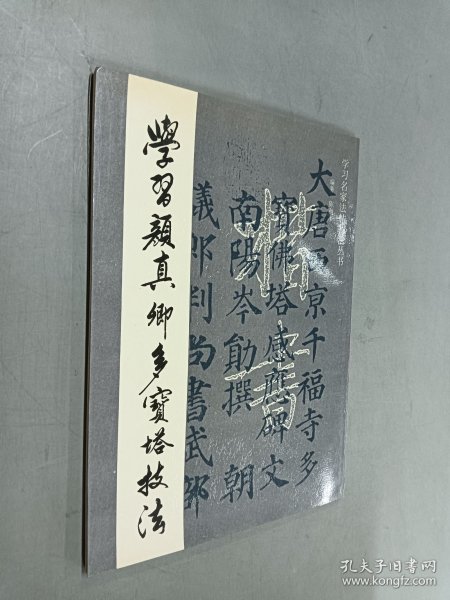 學習顏真卿多寶塔技法
学习名家法帖
丛书
大唐西京千福寺多
寶佛塔感應碑文
南陽岑勛撰 朝
議郎判尚書武部
孔夫子旧书网
www.kongfz.com